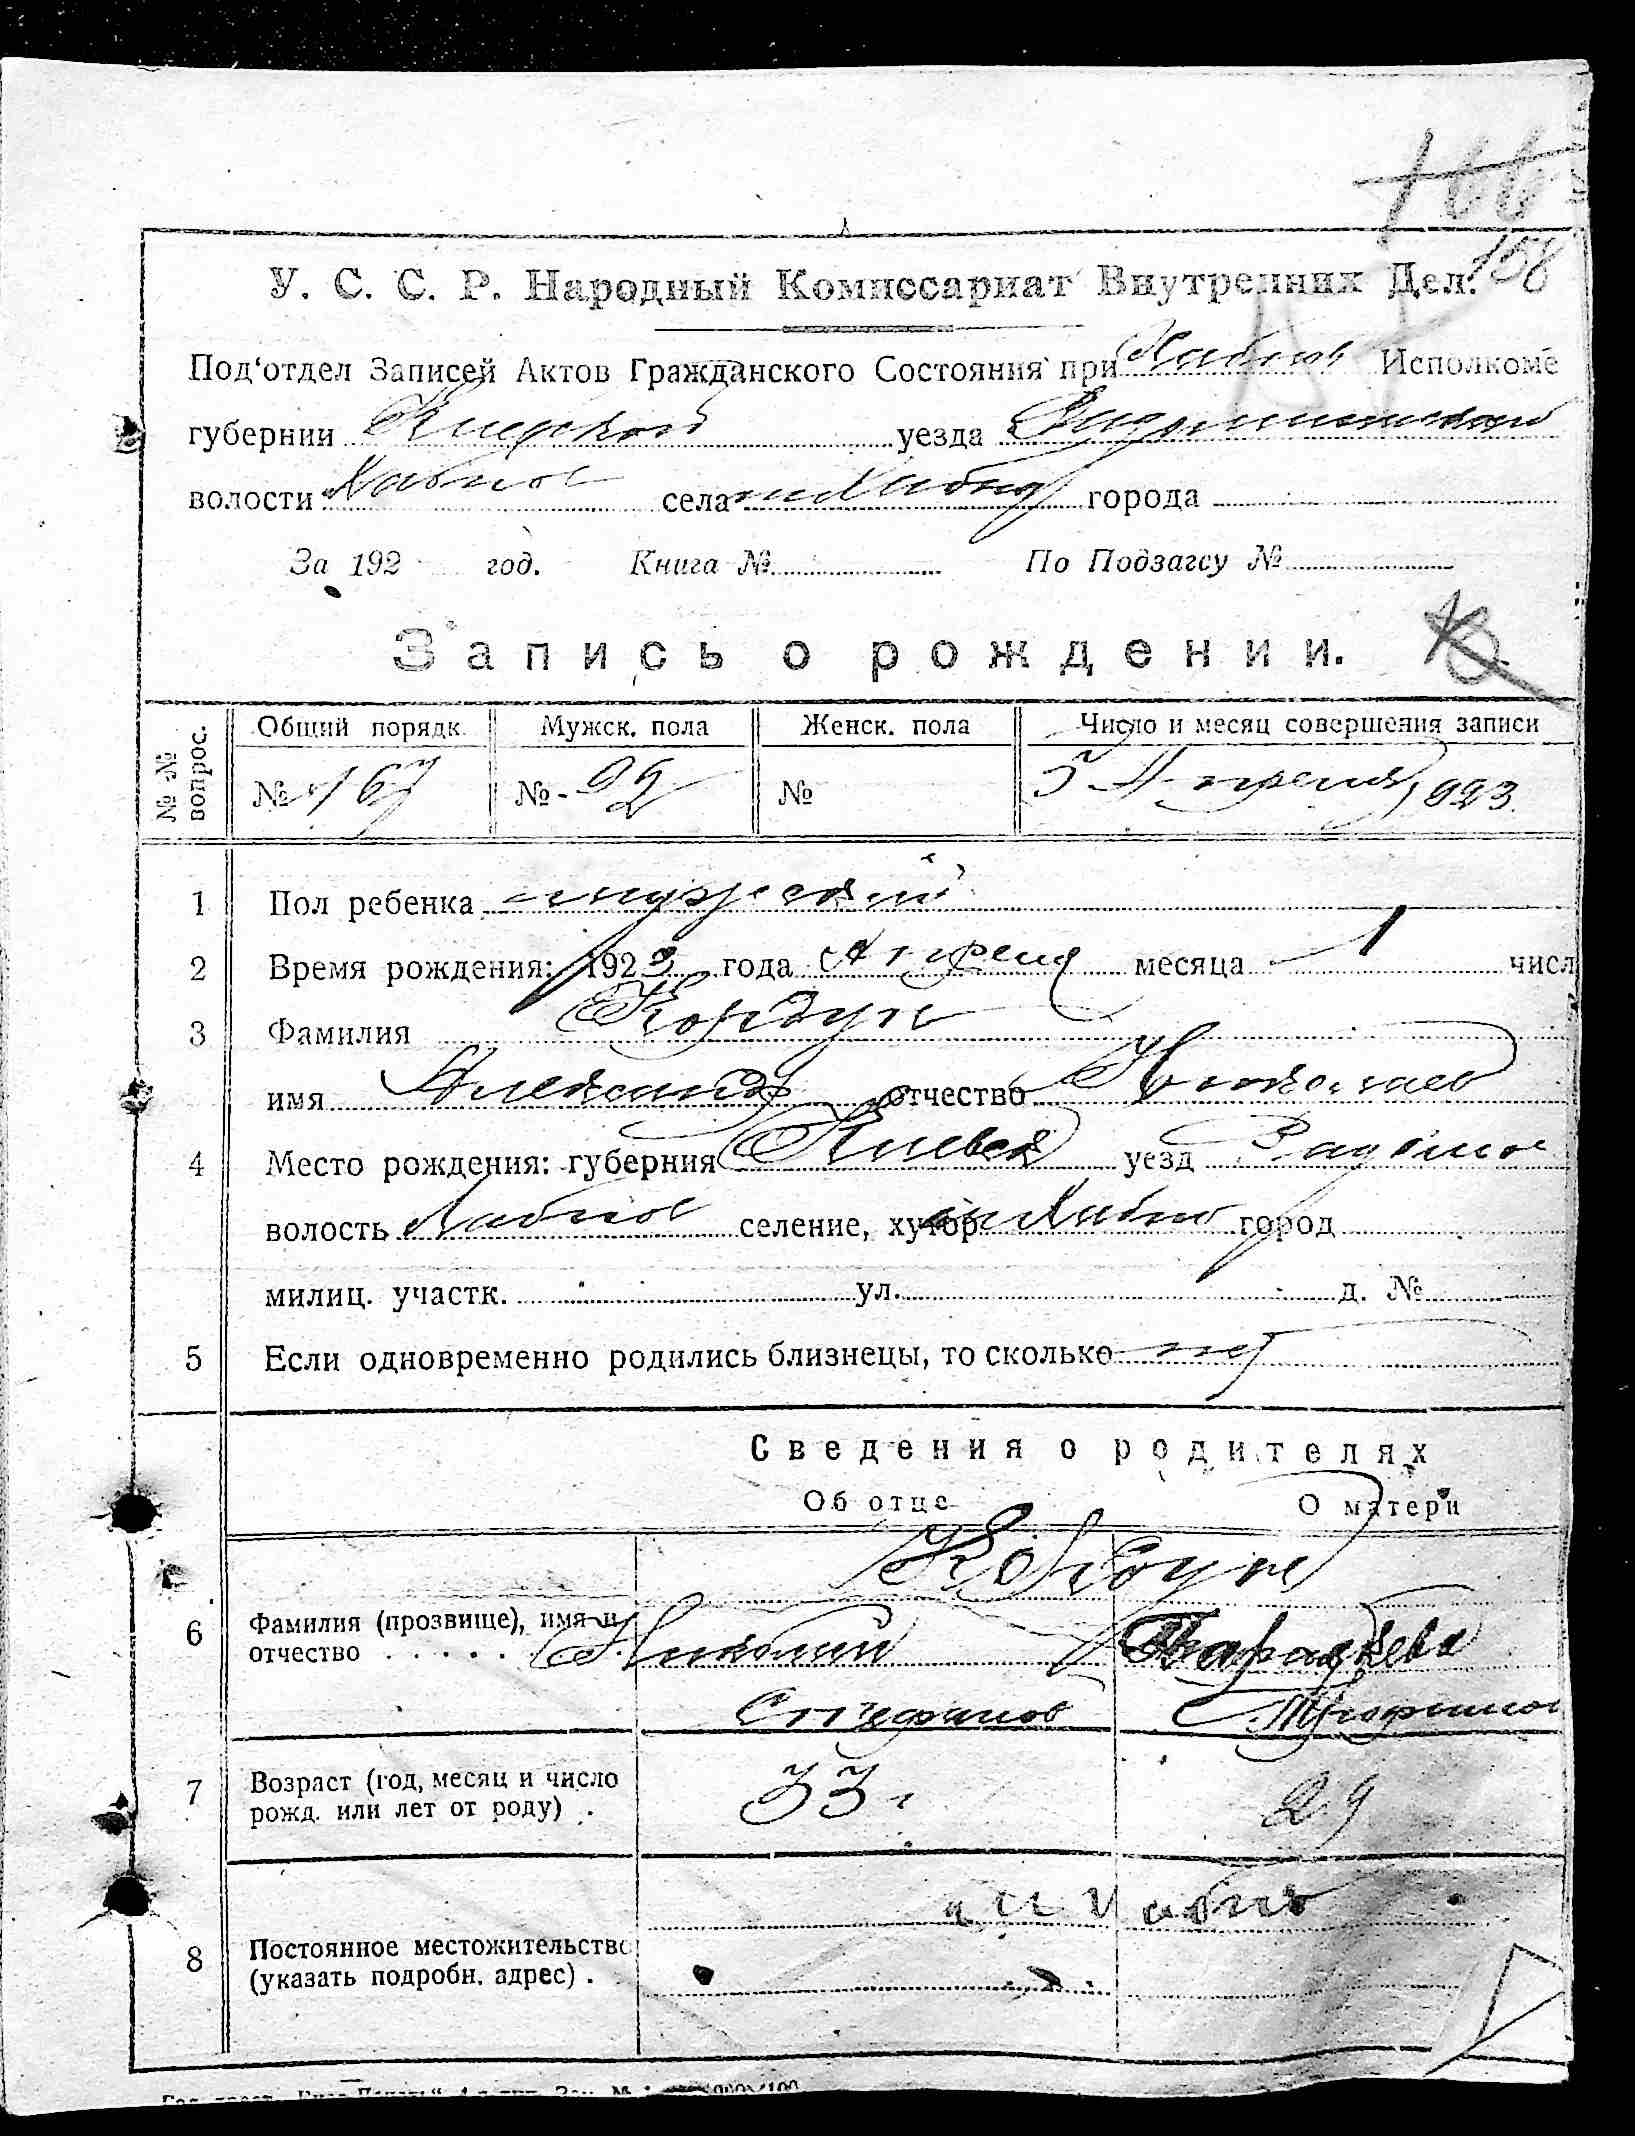 166
158
У. С. С. Р. Народный Комиссариат Внутренних Дел.
Под‘отдел Записей Актов Гражданского Состояния при Хабном Исполкоме
губернии Киевской уезда
волости Хабное села м Хабно города
За 192 год. Книга № По Подзагсу №
Запись о рождении.
№ № вопрос. Общий порядк. Мужск. пола Женск. пола Число и месяц совершения записи
№ 167 № 92 № 5 Апреля 923
1 Пол ребенка мужской
2 Время рождения: 1923 года Апреля месяца 1 числ
3 Фамилия Кордун
имя Александр отчество Николаев
4 Место рождения: губерния Киевск уезд
волость Хабное селение, хутор м Хабно город
милиц. участк. ул. д. №
5 Если одновременно родились близнецы, то сколько нет
Сведения о родителях
Об отце О матери
Кордун
6 Фамилия (прозвище), имя и отчество . . . . . Николай Парасева
Стефанов Трофимов
7 Возраст (год, месяц и число рожд. или лет от роду) . 33 29
м Хабно
8 Постоянное местожительство (указать подробн. адрес) .